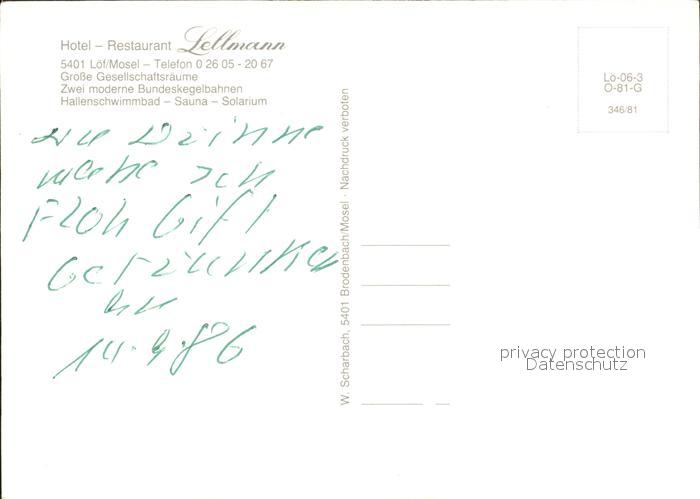 Hotel – Restaurant Lellmann
5401 Löf/Mosel – Telefon 0 26 05 - 20 67
Große Gesellschaftsräume
Zwei moderne Bundeskegelbahnen
Hallenschwimmbad – Sauna – Solarium
Lö-06-3
O-81-G
346/81
W. Scharbach, 5401 Brodenbach/Mosel · Nachdruck verboten
Gift
14.9.86
privacy protection
Datenschutz